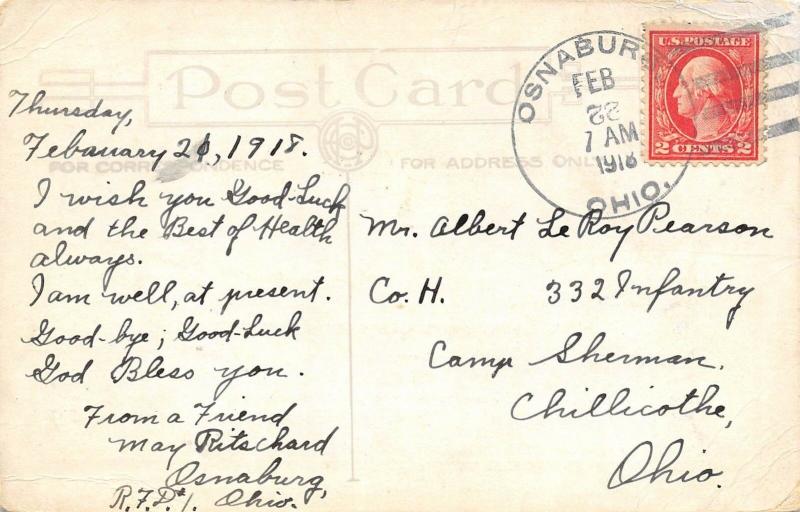 Post Card
FOR CORRESPONDENCE
FOR ADDRESS ONLY
OSNABURG
FEB
22
7 AM
1918
OHIO.
U.S. POSTAGE
2 CENTS 2
Thursday,
Febauary 21, 1918.
I wish you Good-Luck
and the Best of Health
always.
I am well, at present.
Good-bye; Good-Luck
God Bless you.
From a Friend
May Ritschard
Osnaburg,
R.F.D. 1. Ohio.
Mr. Albert LeRoy Pearson
Co. H. 332 Infantry
Camp Sherman.
Chillicothe,
Ohio.